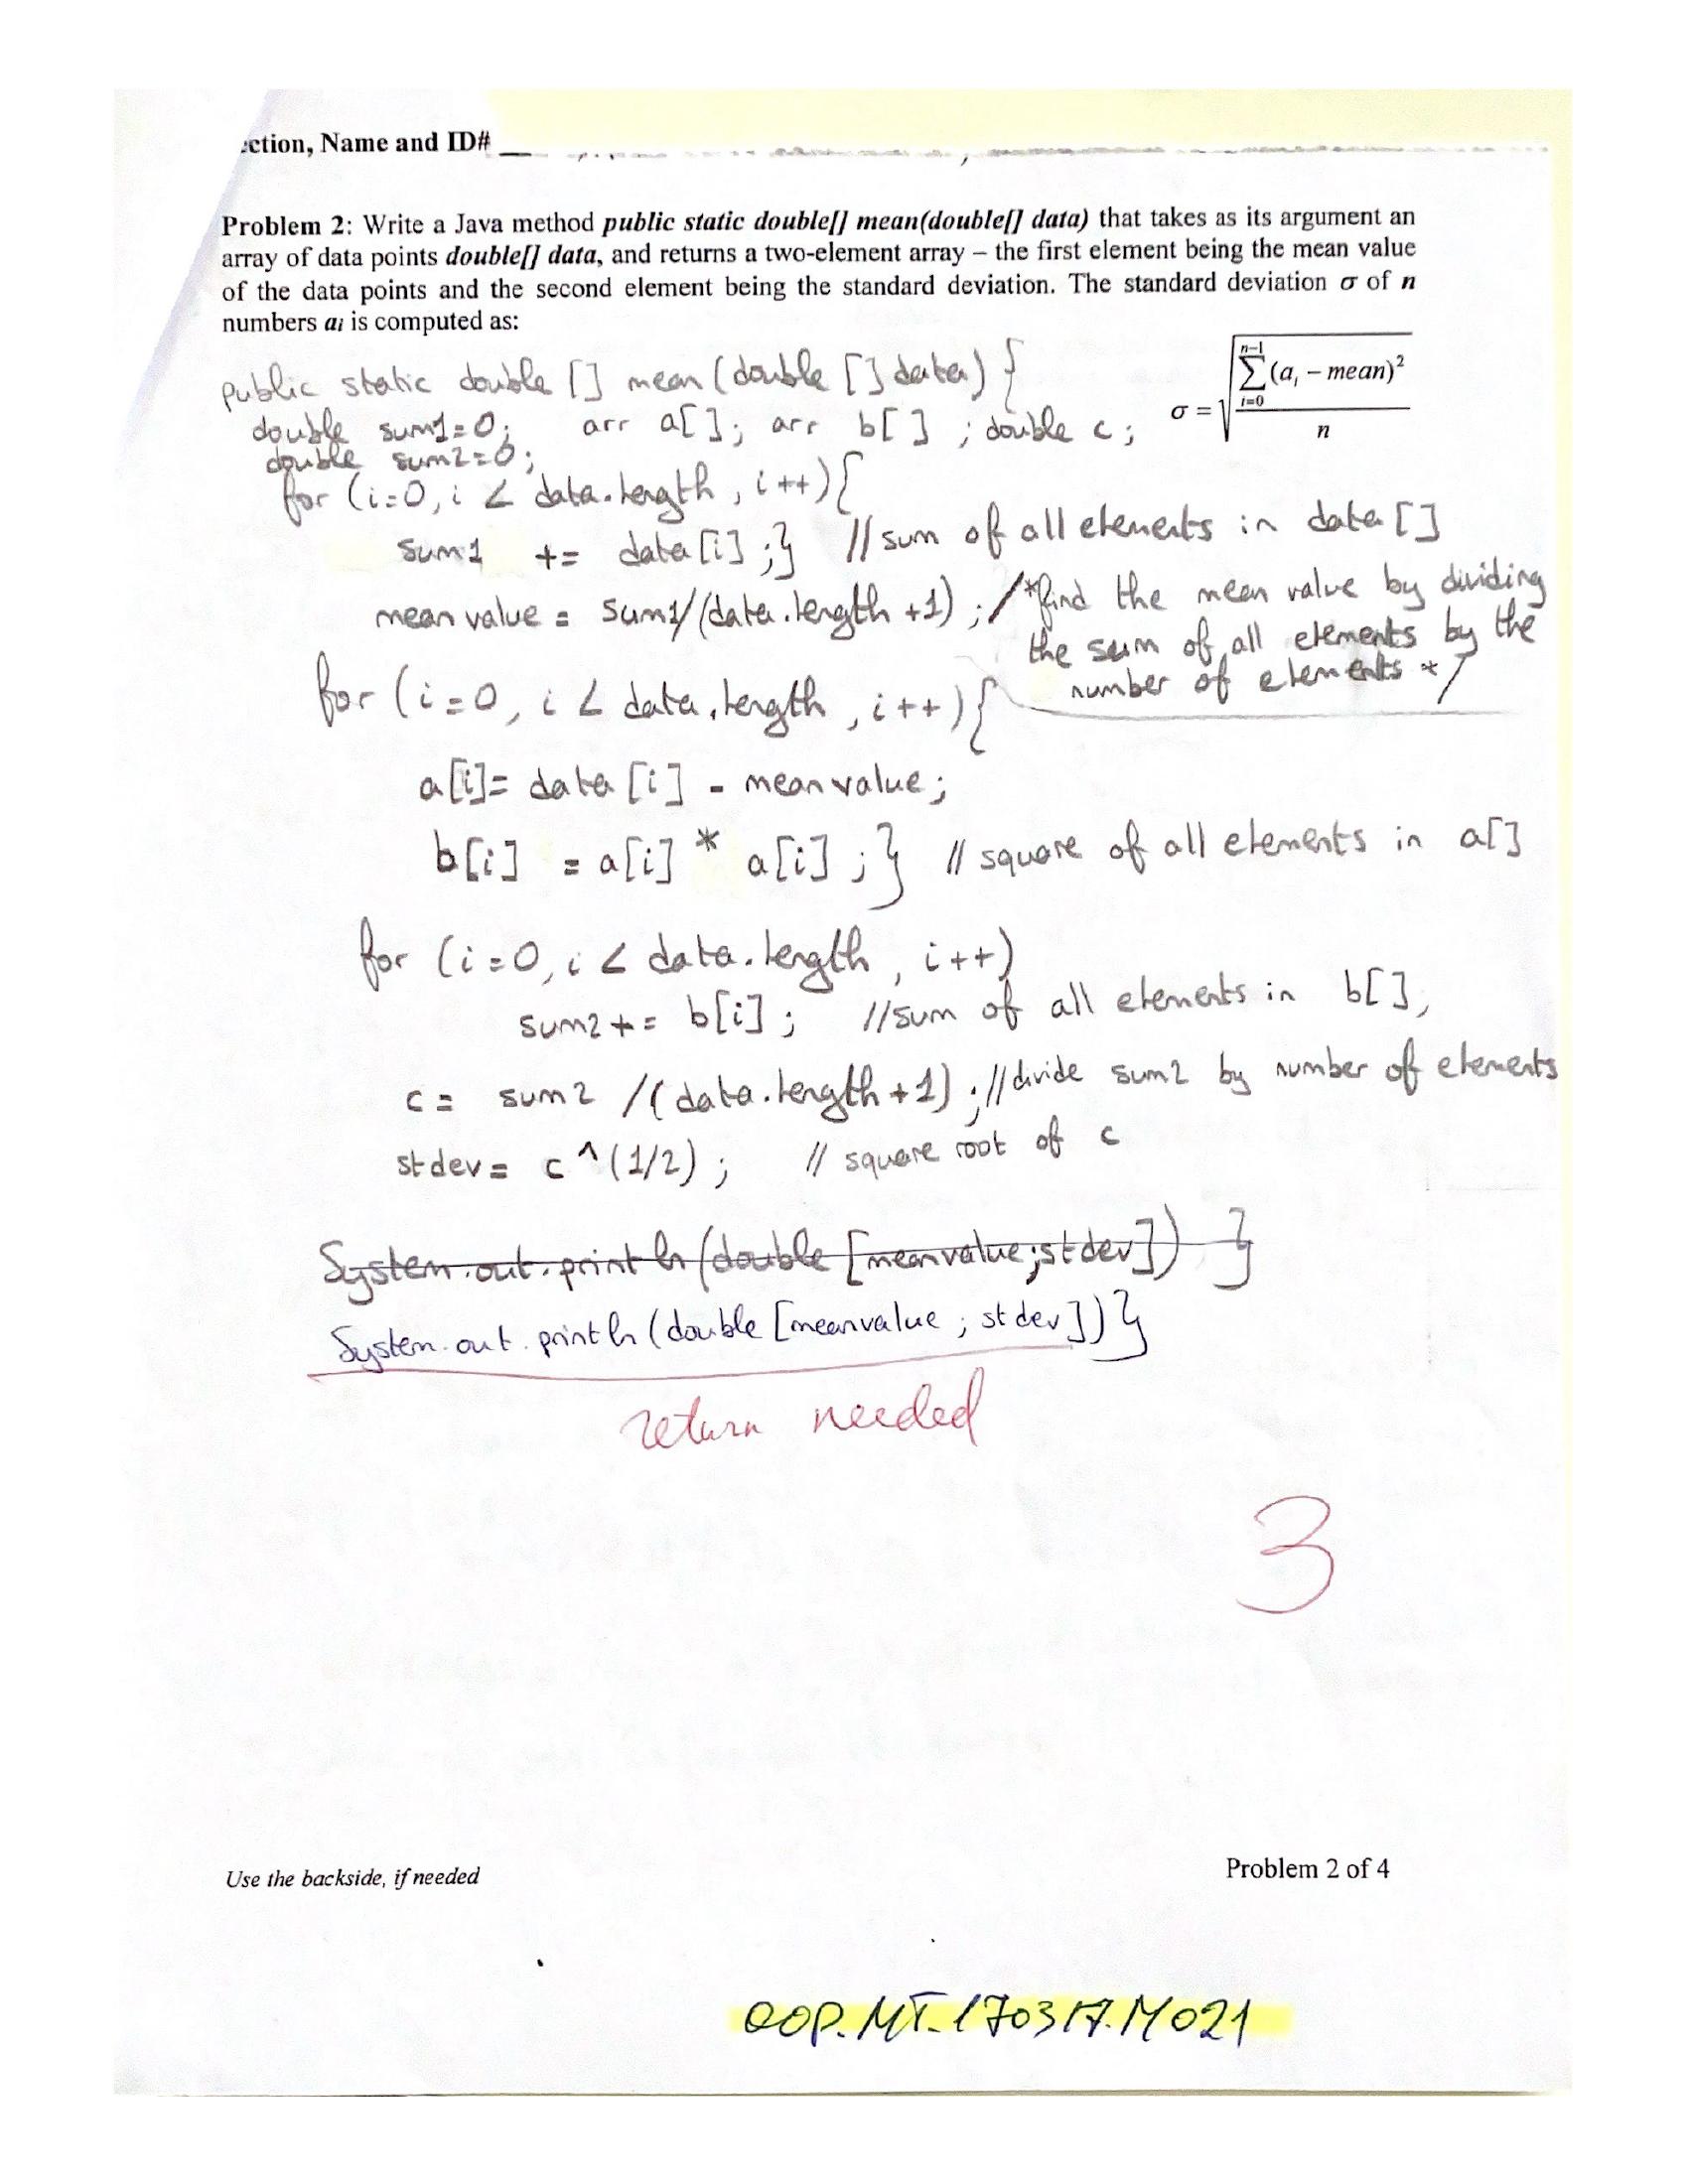 ction, Name and ID#
Problem 2: Write a Java method public static double[] mean(double[] data) that takes as its argument an
array of data points double[] data, and returns a two-element array – the first element being the mean value
of the data points and the second element being the standard deviation. The standard deviation σ of n
numbers ai is computed as:
σ = √(∑(ai – mean)² / n) n-1 i=0
public static double [] mean (double [] data) {
double sum1=0; arr a[]; arr b[] ; double c;
double sum2=0;
for (i=0, i < data.length, i++){
sum1 += data[i];} //sum of all elements in data []
mean value = sum1/(data.length +1) ; /*find the mean value by dividing
the sum of all elements by the
number of elements */
for (i=0, i < data.length, i++){
a[i]= data [i] - meanvalue;
b[i] = a[i] * a[i] ;} // square of all elements in a[]
for (i=0, i < data.length, i++)
sum2+= b[i]; //sum of all elements in b[],
c = sum2 /(data.length+1) ; //divide sum2 by number of elements
stdev= c^(1/2) ; // square root of c
System.out.println(double [meanvalue;stdev]) }
System.out.println(double [meanvalue ; stdev])}
return needed
3
Use the backside, if needed
Problem 2 of 4
OOP.MT.170317.M021